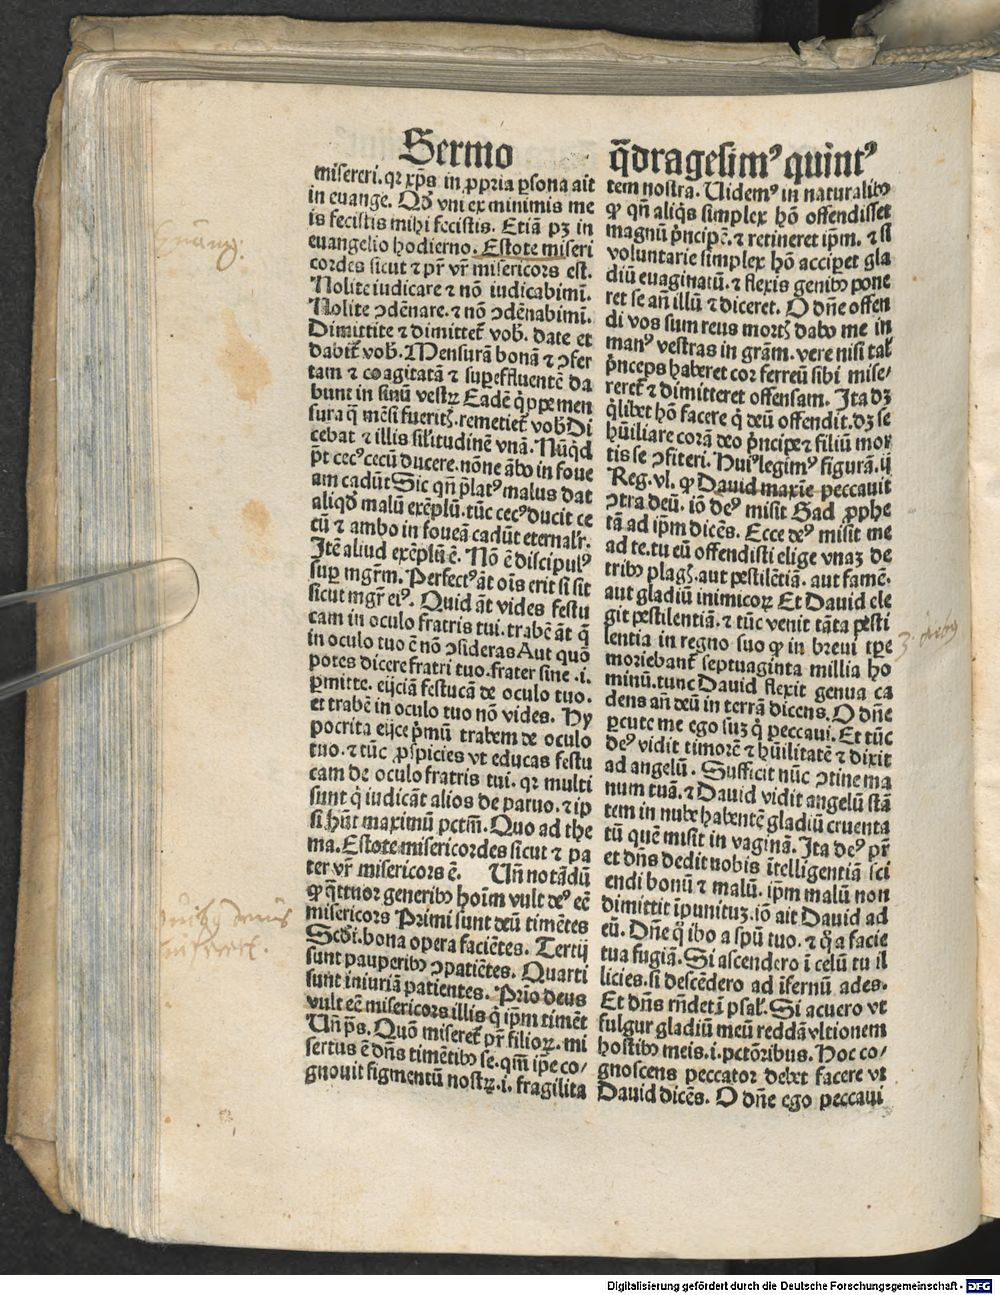 Sermo
miſereri. qꝛ xp̄s in ꝓpria ꝑſona ait
in euange. Qd̓ vni ex minimis me
is feciſtis mihi feciſtis. Etiā pꝫ in
euangelio hodierno. Eſtote miſeri
cordes ſicut ⁊ pr̄ vr̄ miſericors eſt.
Nolite iudicare ⁊ nō iudicabimī.
Nolite ↄdēnare. ⁊ nō ↄdēnabimī.
Dimittite ⁊ dimittet̓ vob̓. date et
dabit̓ vob̓. Menſurā bonā ⁊ ↄfer
tam ⁊ coagitatā ⁊ ſuꝑeffluentē da
bunt in ſinū veſtꝝ Eadē q̓ppe men
ſura q̄ mēſi fueritꝭ. remetiet̓ vob̓ Di
cebat ⁊ illis ſil̓itudinē vnā. Nūq̓d
p̄t cecꝰ cecū ducere. nōne ābo in foue
am cadūt Sic qn̄ p̄latꝰ malus dat
aliqd̓ malū exēplū. tūc cecꝰ ducit ce
cū ⁊ ambo in foueā cadūt eternal̓r.
Itē aliud exēplū ē. Nō ē diſcipulꝰ
ſuꝑ mgr̄m. Perfectꝰ āt oīs erit ſi ſit
ſicut mgr̄ eiꝰ. Quid āt vides feſtu
cam in oculo fratris tui. trabē āt q̄
in oculo tuo ē nō ↄſideras Aut quō
potes dicere fratri tuo. frater ſine .i.
ꝑmitte. eijciā feſtucā de oculo tuo.
et trabē in oculo tuo nō vides. Hy
pocrita eijce p̓mū trabem de oculo
tuo. ⁊ tūc ꝓſpicies vt educas feſtu
cam de oculo fratris tui. qꝛ multi
ſunt q̓ iudicāt alios de paruo. ⁊ ip
ſi hn̄t maximū pctm̄. Quo ad the
ma. Eſtote miſericordes ſicut ⁊ pa
ter vr̄ miſericors ē. Un̄ notādū
ꝙ q̄ttuor generibꝰ hoīm vult deꝰ eē
miſericors Primi ſunt deū timētes
Scd̓i. bona opera faciētes. Tertij
ſunt pauperibꝰ ↄpatiētes. Quarti
ſunt iniuriā patientes. Prīo deus
vult eē miſericors illis q̓ ip̄m timēt
Un̄ p̄s. Quō miſeret̓ pr̄ filioꝝ. mi
ſertus ē dn̄s timētibꝰ ſe. qm̄ ip̄e co/
gnouit figmentū noſtꝝ .i. fragilita
q̄drageſimꝰ quintꝰ
tem noſtra. Uidemꝰ in naturalibꝰ
ꝙ qn̄ aliq̓s ſimplex hō offendiſſet
magnū p̓ncipē. ⁊ retineret ip̄m. ⁊ ſi
voluntarie ſimplex hō acciꝑet gla
diū euaginatū. ⁊ flexis genibꝰ pone
ret ſe an̄ illū ⁊ diceret. O dn̄e offen
di vos ſum reus mortꝭ dabo me in
manꝰ veſtras in gr̄am. vere niſi tal̓
p̓nceps haberet cor ferreū ſibi miſe/
reret̓ ⁊ dimitteret offenſam. Ita dꝫ
q̓libet hō facere q̓ deū offendit. dꝫ ſe
hūiliare corā deo p̓ncipe ⁊ filiū mor
tis ſe ↄfiteri. Huiꝰ legimꝰ figurā. ij
Reg. vl. ꝙ Dauid maxīe peccauit
ↄtra deū. iō deꝰ miſit Gad ꝓphe
tā ad ip̄m dicēs. Ecce deꝰ miſit me
ad te. tu eū offendiſti elige vnaꝫ de
tribꝰ plagꝭ. aut peſtilētiā. aut famē.
aut gladiū inimicoꝝ Et Dauid ele
git peſtilentiā. ⁊ tūc venit tāta peſti
lentia in regno ſuo ꝙ in breui tꝑe
moriebant̓ ſeptuaginta millia ho
minū. tunc Dauid flexit genua ca
dens an̄ deū in terrā dicens. O dn̄e
ꝑcute me ego ſūꝫ q̓ peccaui. Et tūc
deꝰ vidit timorē ⁊ hūilitatē ⁊ dixit
ad angelū. Sufficit nūc ↄtine ma
num tuā. ⁊ Dauid vidit angelū ſtā
tem in nube habentē gladiū cruenta
tū quē miſit in vaginā. Ita deꝰ pr̄
et dn̄s dedit nobis ītelligentiā ſci
endi bonū ⁊ malū. ip̄m malū non
dimittit īpunituꝫ. iō ait Dauid ad
eū. Dn̄e q̓ ibo a ſpū tuo. ⁊ q̓ a facie
tua fugiā. Si aſcendero ī celū tu il
lic es. ſi deſcēdero ad īfernū ades.
Et dn̄s rn̄det ī pſal̓. Si acuero vt
fulgur gladiū meū reddā vltionem
hoſtibꝰ meis .i. pctōribus. Hoc co/
gnoſcens peccator debet facere vt
Dauid dicēs. O dn̄e ego peccaui
Digitalisierung gefördert durch die Deutsche Forschungsgemeinschaft - DFG